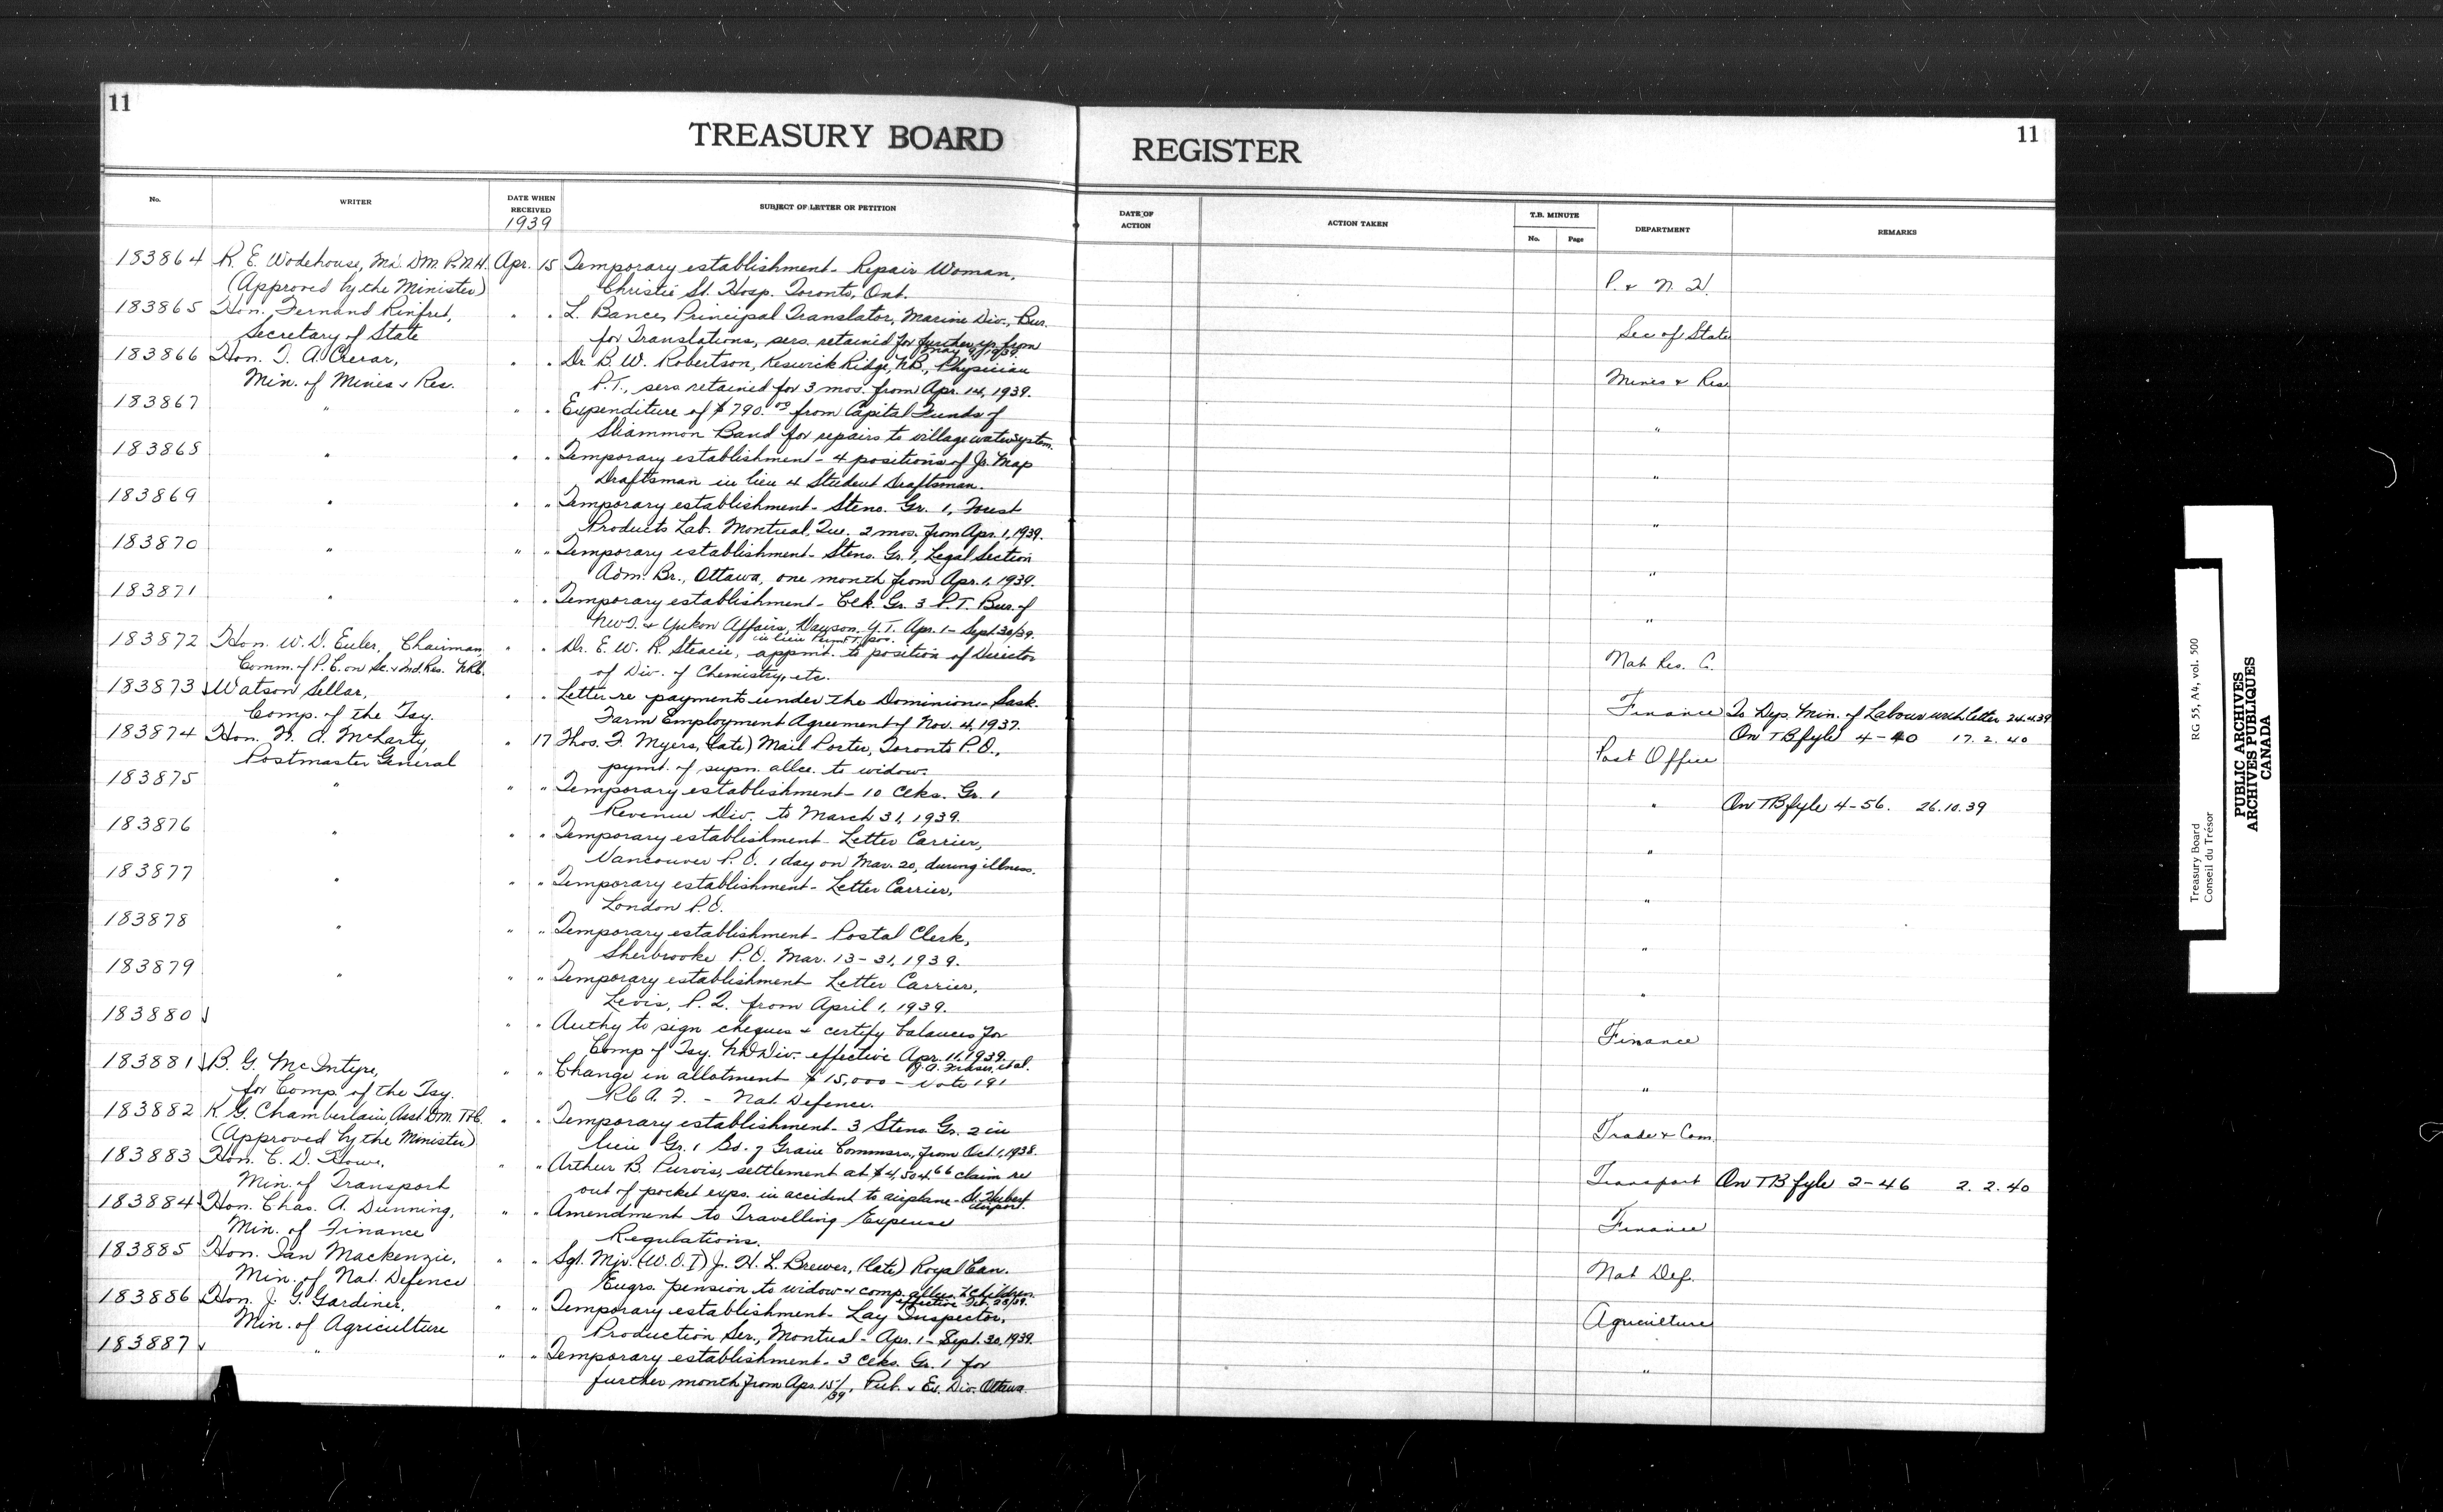 11
TREASURY BOARD REGISTER
11
No. WRITER DATE WHEN RECEIVED SUBJECT OF LETTER OR PETITION DATE OF ACTION ACTION TAKEN T.B. MINUTE No. Page DEPARTMENT REMARKS
1939
183864 R. E. Wodehouse, M.D. DM. P.&N.H. Apr. 15 Temporary establishment - Repair Woman, P. & N. H.
(Approved by the Minister) Christie St. Hosp. Toronto, Ont.
183865 Hon. Fernand Rinfret, " " L. Bance, Principal Translator, Marine Div., Bur. Sec of State
Secretary of State for Translations, sers. retained for further yr. from May 9/1939.
183866 Hon. T. A. Crerar, " " Dr. B. W. Robertson, Keswick Ridge, N.B., Physician Mines & Res
Min. of Mines & Res. P.T., sers. retained for 3 mos. from Apr. 14, 1939.
183867 " " " Expenditure of $790.00 from Capital Funds of "
Sliammon Band for repairs to village water system.
183868 " " " Temporary establishment - 4 positions of Jr. Map "
Draftsman in lieu 4 Student Draftsman.
183869 " " " Temporary establishment - Steno. Gr. 1, Forest "
Products Lab. Montreal, Que. 2 mos. from Apr. 1, 1939.
183870 " " " Temporary establishment - Steno. Gr. 1, Legal Section "
Adm. Br., Ottawa, one month from Apr. 1, 1939.
183871 " " " Temporary establishment - Clk. Gr. 3 P.T. Bur. of "
N.W.T. & Yukon Affairs, Dawson, Y.T. Apr. 1 - Sept. 30/39.
in lieu Permt. pos.
183872 Hon. W. D. Euler, Chairman, " " Dr. E. W. R. Steacie, appmt. to position of Director Nat Res. C.
Comm. of P. C. on Sc. & Ind. Res. NRC. of Div. of Chemistry, etc.
183873 Watson Sellar, " " Letter re payments under the Dominion - Sask. Finance To Dep. Min. of Labour with letter 24.4.39
Comp. of the Tsy. Farm Employment Agreement of Nov. 4, 1937. On TB fyle 4-40 17.2.40
183874 Hon. N. A. McLarty, " 17 Thos. F. Myers, (late) Mail Porter, Toronto P.O., Post Office
Postmaster General pymt. of supn. allce. to widow.
183875 " " " Temporary establishment - 10 Clks. Gr. 1 " On TB fyle 4-56. 26.10.39
Revenue Div. to March 31, 1939.
183876 " " " Temporary establishment - Letter Carrier, "
Vancouver P.O. 1 day on Mar. 20, during illness.
183877 " " " Temporary establishment - Letter Carrier, "
London P.O.
183878 " " " Temporary establishment - Postal Clerk, "
Sherbrooke P.O. Mar. 13-31, 1939.
183879 " " " Temporary establishment Letter Carrier, "
Levis, P.Q. from April 1, 1939.
183880 " " Authy to sign cheques & certify balances for Finance
Comp of Tsy. N.D. Div. effective Apr. 11, 1939.
R. A. Fraser, et al.
183881 B. G. McIntyre, " " Change in allotment $15,000 - Vote 191 "
for Comp. of the Tsy. R.C.A.F. - Nat. Defence.
183882 K. G. Chamberlain, Asst. DM. T&C. " " Temporary establishment - 3 Steno. Gr. 2 in Trade & Com.
(Approved by the Minister) lieu Gr. 1 Bd. of Grain Commsrs., from Oct. 1, 1938.
183883 Hon. C. D. Howe, " " Arthur B. Purvis, settlement at $4,504.66 claim re Transport On TB fyle 2-46 2.2.40
Min. of Transport out of pocket exps. in accident to airplane - St. Hubert Airport.
183884 Hon. Chas. A. Dunning, " " Amendment to Travelling Expense Finance
Min. of Finance Regulations.
183885 Hon. Ian Mackenzie, " " Sgt. Mjr. (W.O.I) J. H. L. Brewer, (late) Royal Can. Nat Def.
Min. of Nat. Defence Engrs. pension to widow & comp. allce. 2 children.
effective Feb. 28/39.
183886 Hon. J. G. Gardiner, " " Temporary establishment - Lay Inspector, Agriculture
Min. of Agriculture Production Ser., Montreal - Apr. 1 - Sept. 30, 1939.
183887 " " " Temporary establishment - 3 Clks. Gr. 1 for "
further month from Apr. 15/39, Pub. & Ex. Div. Ottawa
Treasury Board RG 55, A4, vol. 500
Conseil du Trésor
PUBLIC ARCHIVES
ARCHIVES PUBLIQUES
CANADA